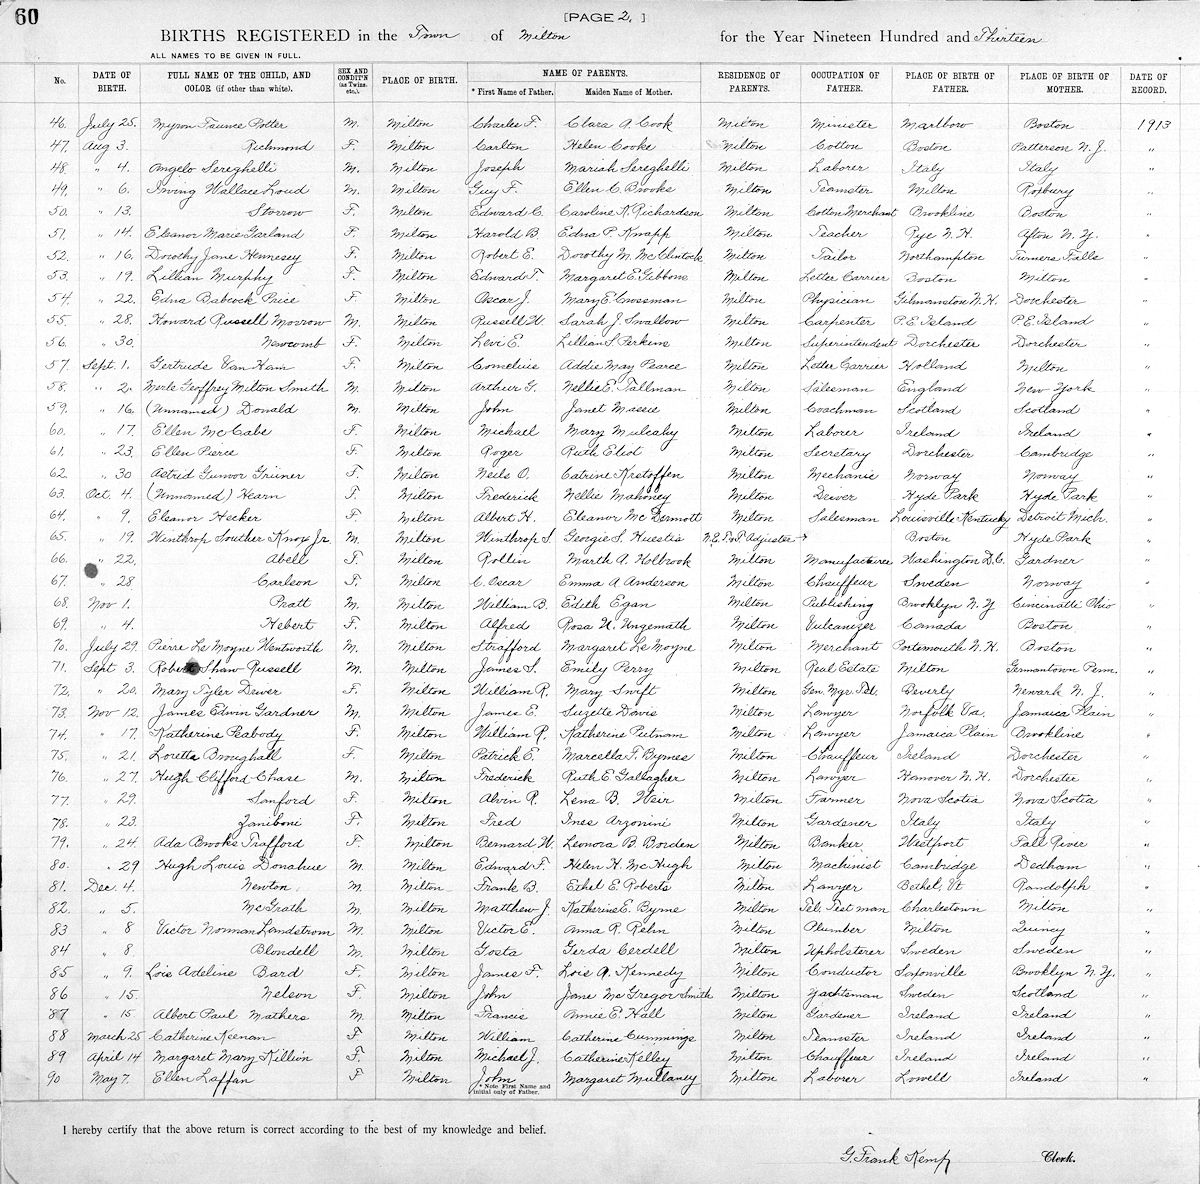 60
[PAGE 2. ]
BIRTHS REGISTERED in the Town of Milton for the Year Nineteen Hundred and Thirteen
ALL NAMES TO BE GIVEN IN FULL.
No. DATE OF BIRTH. FULL NAME OF THE CHILD, AND COLOR (if other than white). SEX AND CONDIT'N (as Twins, etc.). PLACE OF BIRTH. NAME OF PARENTS. * First Name of Father. Maiden Name of Mother. RESIDENCE OF PARENTS. OCCUPATION OF FATHER. PLACE OF BIRTH OF FATHER. PLACE OF BIRTH OF MOTHER. DATE OF RECORD.
46. July 25. Myron Faunce Potter M. Milton Charles F. Clara A. Cook Milton Minister Marlboro Boston 1913
47. Aug 3. Richmond F. Milton Carlton Helen Cooke Milton Cotton Boston Patterson N.J. "
48. " 4. Angelo Sereghelli M. Milton Joseph Mariah Sereghelli Milton Laborer Italy Italy "
49. " 6. Irving Wallace Loud M. Milton Guy F. Ellen C. Brooks Milton Teamster Milton Roxbury "
50. " 13. Storrow F. Milton Edward C. Caroline K. Richardson Milton Cotton Merchant Brookline Boston "
51. " 14. Eleanor Marie Garland F. Milton Harold B. Edna P. Knapp Milton Teacher Rye N.H. Afton N.Y. "
52. " 16. Dorothy Jane Hennesey F. Milton Robert E. Dorothy M. McClintock Milton Tailor Northampton Turners Falls "
53. " 19. Lillian Murphy F. Milton Edward T. Margaret E. Gibbons Milton Letter Carrier Boston Milton "
54. " 22. Edna Babcock Price F. Milton Oscar J. Mary E. Crossman Milton Physician Gilmanston N.H. Dorchester "
55. " 28. Howard Russell Morrow M. Milton Russell W. Sarah J. Swallow Milton Carpenter P.E. Island P.E. Island "
56. " 30. Newcomb F. Milton Levi E. Lillian S. Perkins Milton Superintendent Dorchester Dorchester "
57. Sept. 1. Gertrude Van Ham F. Milton Cornelius Addie May Pearce Milton Letter Carrier Holland Milton "
58. " 2. Merle Geoffrey Milton Smith M. Milton Arthur G. Nellie E. Tallman Milton Salesman England New York "
59. " 16. (Unnamed) Donald M. Milton John Janet Massie Milton Coachman Scotland Scotland "
60. " 17. Ellen McCabe F. Milton Michael Mary Mulcahy Milton Laborer Ireland Ireland "
61. " 23. Ellen Pierce F. Milton Roger Ruth Eliot Milton Secretary Dorchester Cambridge "
62. " 30 Astrid Gunvor Grüner F. Milton Neils O. Catrine Kristoffen Milton Mechanic Norway Norway "
63. Oct. 4. (Unnamed) Hearn F. Milton Frederick Nellie Mahoney Milton Driver Hyde Park Hyde Park "
64. " 9. Eleanor Hecker F. Milton Albert H. Eleanor McDermott Milton Salesman Louisville Kentucky Detroit Mich. "
65. " 19. Winthrop Souther Knox Jr. M. Milton Winthrop S. Georgie S. Huestis Adjuster Boston Hyde Park "
66. " 22. Abell F. Milton Rollin Marth A. Holbrook Milton Manufacturer Washington D.C. Gardner "
67. " 28 Carlson F. Milton C. Oscar Emma A. Anderson Milton Chauffeur Sweden Norway "
68. Nov 1. Pratt M. Milton William B. Edith Egan Milton Publishing Brooklyn N.Y Cincinatti Ohio "
69. " 4. Hebert F. Milton Alfred Rosa N. Ungemath Milton Vulcanizer Canada Boston "
70. July 29. Pierre Le Moyne Wentworth M. Milton Strafford Margaret Le Moyne Milton Merchant Portsmouth N.H. Boston "
71. Sept 3. Robert Shaw Russell M. Milton James S. Emily Perry Milton Real Estate Milton Germantown Penn. "
72. " 20. Mary Tyler Driver F. Milton William R. Mary Swift Milton Gen. Mgr. Tel. Beverly Newark N.J. "
73. Nov 12. James Edwin Gardner M. Milton James E. Suzette Davis Milton Lawyer Norfolk Va. Jamaica Plain "
74. " 17. Katherine Peabody F. Milton William R. Katherine Putnam Milton Lawyer Jamaica Plain Brookline "
75. " 21. Loretta Broughall F. Milton Patrick E. Marcella F. Byrnes Milton Chauffeur Ireland Dorchester "
76. " 27. Hugh Clifford Chase M. Milton Frederick Ruth E. Gallagher Milton Lawyer Hanover N.H. Dorchester "
77. " 29. Sanford F. Milton Alvin R. Lena B. Weir Milton Farmer Nova Scotia Nova Scotia "
78. " 23. Zaniboni F. Milton Fred Ines Arzonini Milton Gardener Italy Italy "
79. " 24 Ada Brooks Trafford F. Milton Bernard W. Leonora B. Borden Milton Banker Westport Fall River "
80. " 29 Hugh Louis Donahue M. Milton Edward F. Helen H. McHugh Milton Machinist Cambridge Dedham "
81. Dec. 4. Newton M. Milton Frank B. Ethel E. Roberts Milton Lawyer Bethel, Vt Randolph "
82. " 5. McGrath M. Milton Matthew J. Katherine E. Byrne Milton Tel. Test man Charlestown Milton "
83 " 8 Victor Norman Landstrom M. Milton Victor E. Anna R. Rehn Milton Plumber Milton Quincy "
84 " 8 Blondell M. Milton Gosta Gerda Cerdell Milton Upholsterer Sweden Sweden "
85 " 9. Lois Adeline Bard F. Milton James F. Lois A. Kennedy Milton Conductor Saxonville Brooklyn N.Y. "
86 " 15. Nelson F. Milton John Jane McGregor Smith Milton Yachtsman Sweden Scotland "
87 " 15 Albert Paul Mathers M. Milton Francis Annie E. Hall Milton Gardener Ireland Ireland "
88 March 25 Catherine Keenan F. Milton William Catherine Cummings Milton Teamster Ireland Ireland "
89 April 14 Margaret Mary Killion F. Milton Michael J. Catherine Kelley Milton Chauffeur Ireland Ireland "
90 May 7. Ellen Laffan F Milton John Margaret Mullaney Milton Laborer Lowell Ireland "
* Note. First Name and initial only of Father.
I hereby certify that the above return is correct according to the best of my knowledge and belief.
G. Frank Kemp Clerk.